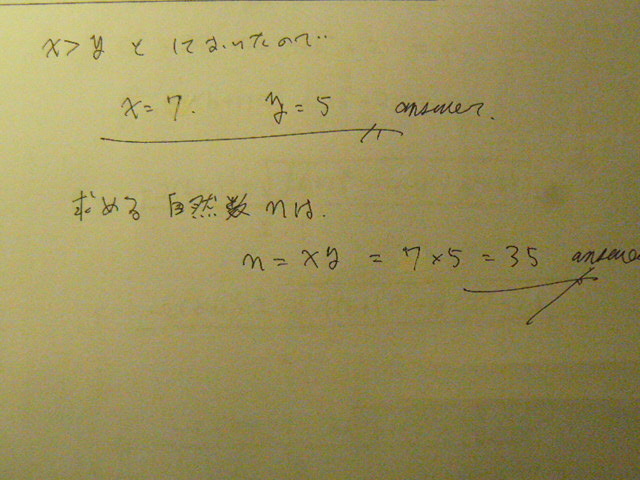 x>y と においたので‥
x=7. y=5 answer.
求める 自然数 nは.
n=xy =7×5=35 answer